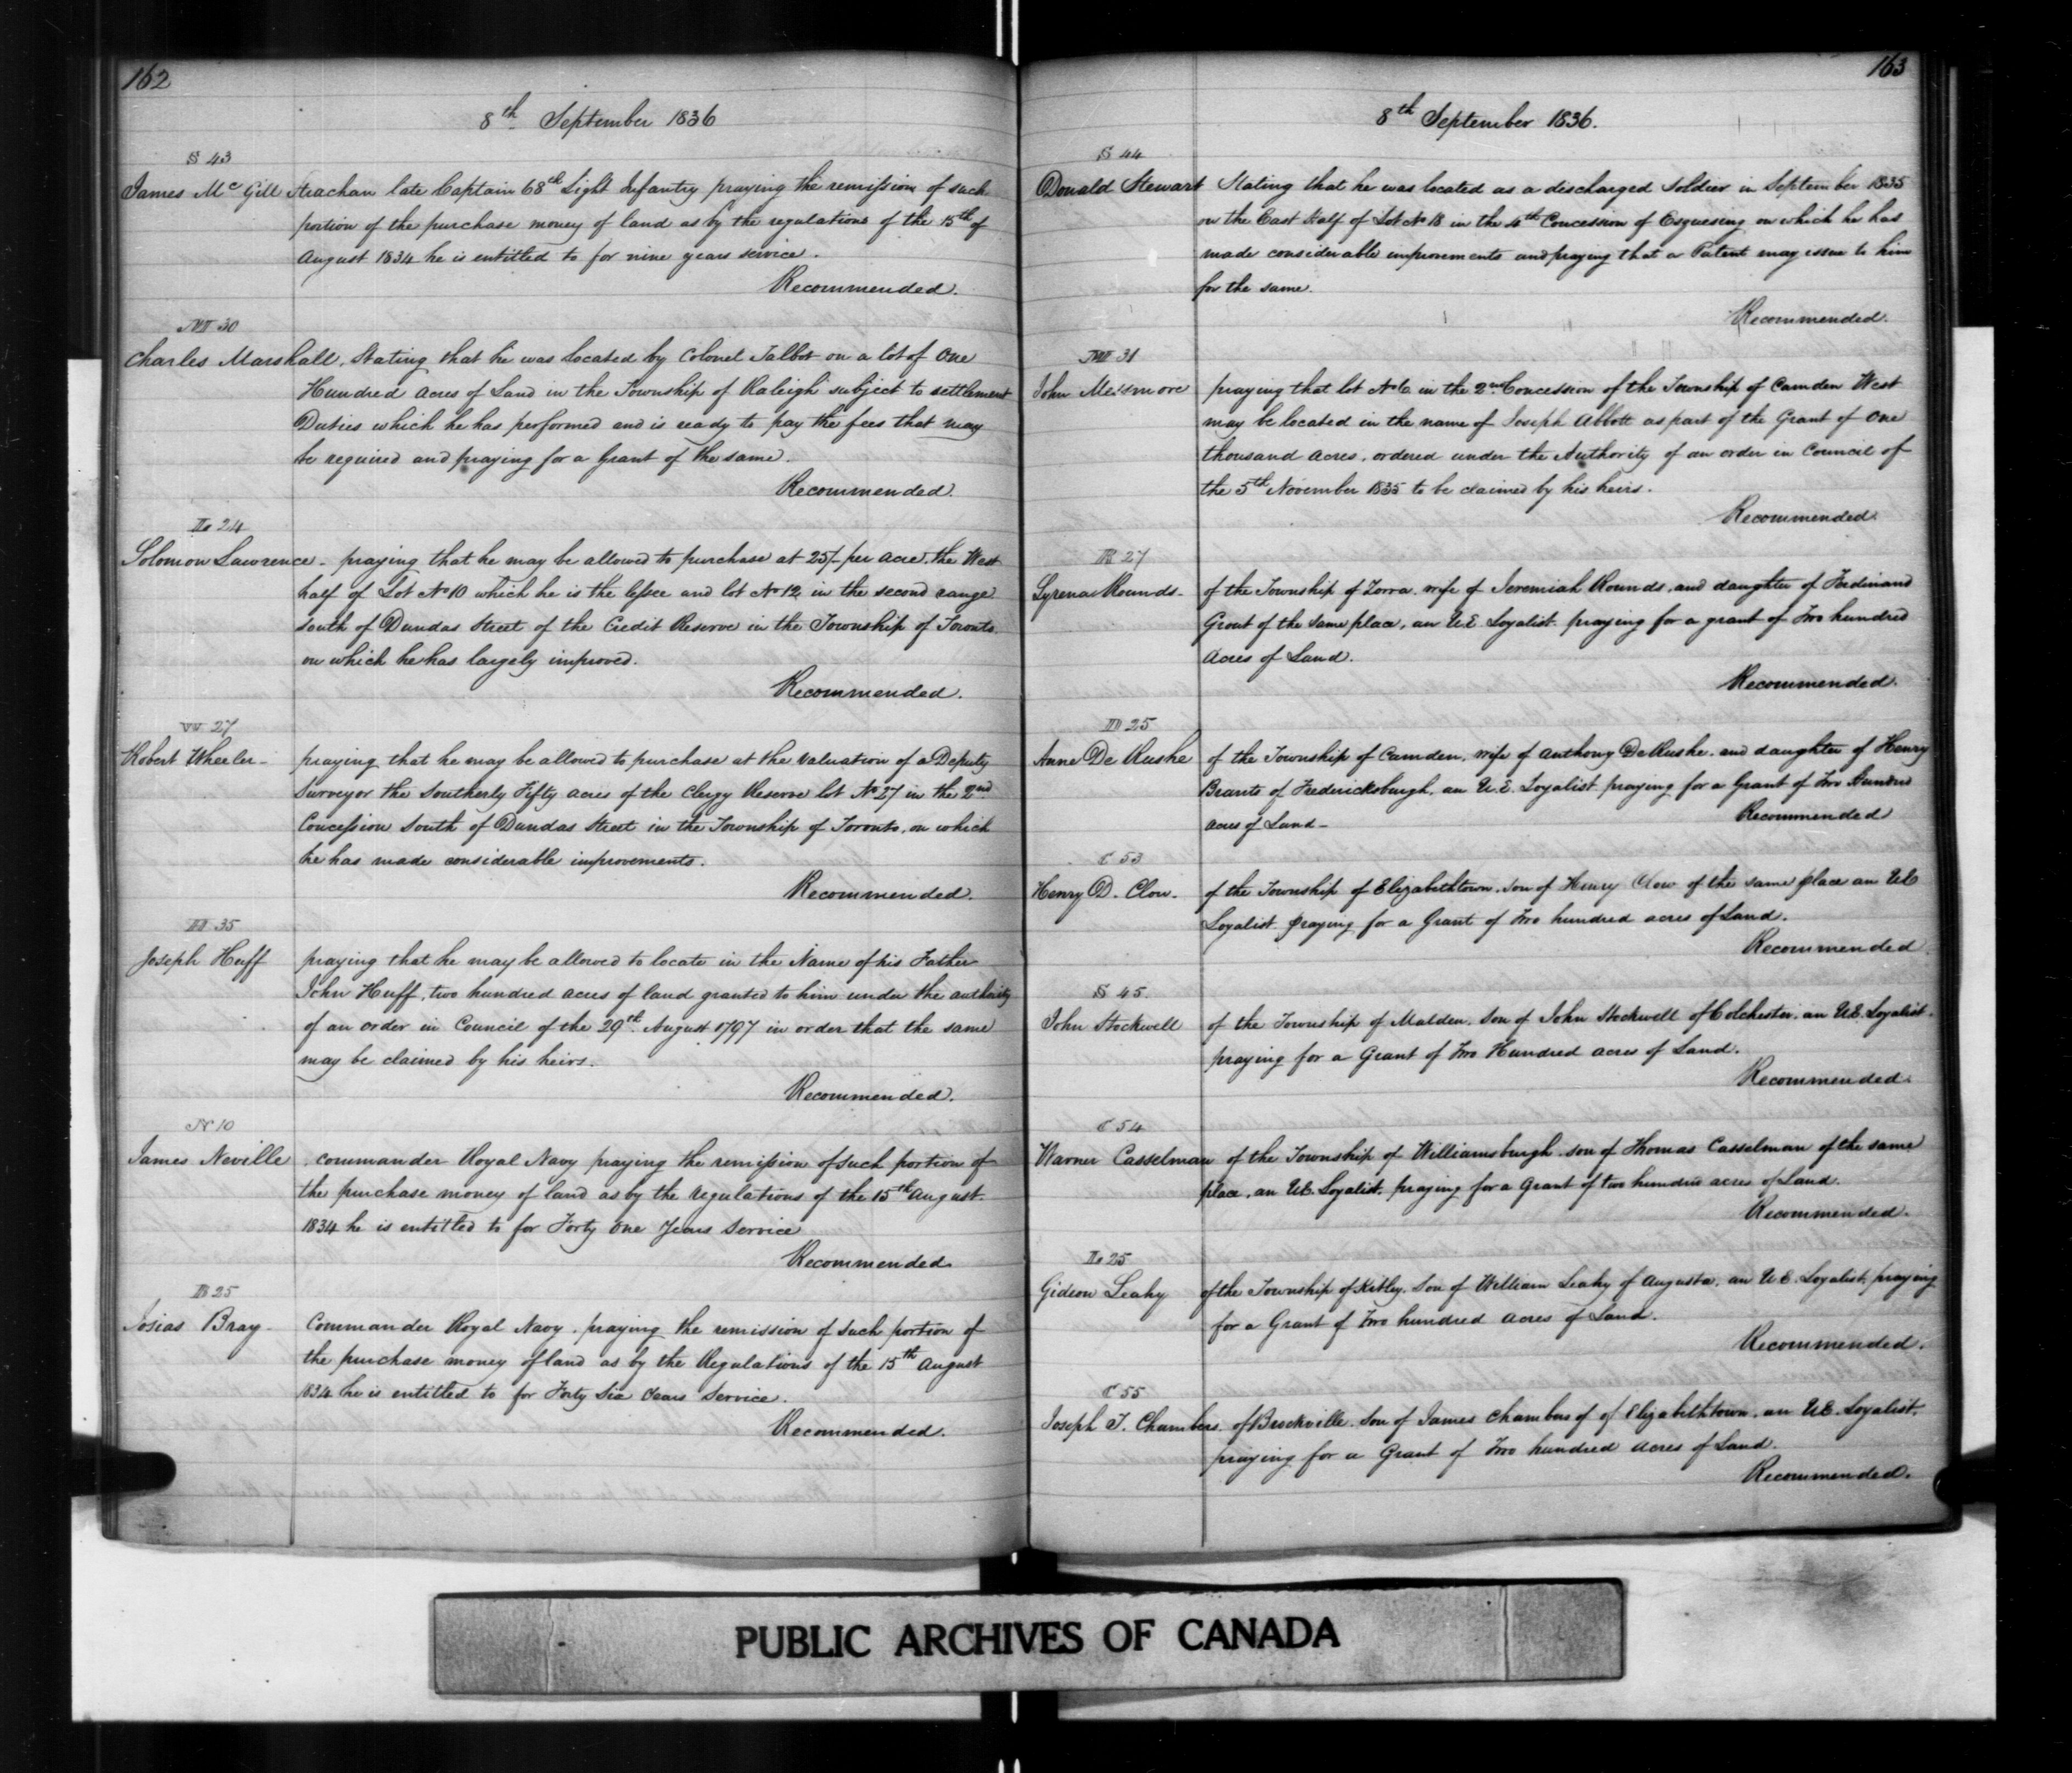 162
8th September 1836
S 43
James McGill Strachan late Captain 68th Light Infantry praying the remission of such
portion of the purchase money of land as by the regulations of the 15th of
August 1834 he is entitled to for nine years service.
Recommended.
M 30
Charles Marshall, Stating that he was located by Colonel Talbot on a lot of One
Hundred acres of Land in the Township of Raleigh subject to settlement
Duties which he has performed and is ready to pay the fees that may
be required and praying for a Grant of the same.
Recommended.
L 24
Solomon Lawrence - praying that he may be allowed to purchase at 25/- per acre, the West
half of Lot No 10 which he is the lessee and lot No 12 in the second range
South of Dundas Street of the Credit Reserve in the Township of Toronto
on which he has largely improved.
Recommended.
W 27
Robert Wheeler - praying that he may be allowed to purchase at the valuation of a Deputy
Surveyor the Southerly Fifty acres of the Clergy Reserve lot No 27 in the 2nd
Concession South of Dundas Street in the Township of Toronto, on which
he has made considerable improvements.
Recommended.
H 35
Joseph Huff praying that he may be allowed to locate in the Name of his Father
John Huff, two hundred acres of land granted to him under the authority
of an order in Council of the 29th August 1797 in order that the same
may be claimed by his heirs.
Recommended.
N 10
James Neville, commander Royal Navy praying the remission of such portion of
the purchase money of land as by the regulations of the 15th August
1834 he is entitled to for Forty One Years Service
Recommended.
B 25
Josias Bray - Commander Royal Navy. praying the remission of such portion of
the purchase money of land as by the Regulations of the 15th August
1834 he is entitled to for Forty Six Years Service.
Recommended.
163
8th September 1836.
S 44
Donald Stewart Stating that he was located as a discharged Soldier in September 1835
on the East Half of Lot No 18 in the 4th Concession of Esquesing on which he has
made considerable improvements and praying that a Patent may issue to him
for the same.
Recommended.
M 31
John Messmore praying that lot No 6 in the 2nd Concession of the Township of Camden West
may be located in the name of Joseph Abbott as part of the Grant of One
thousand acres, ordered under the Authority of an order in Council of
the 5th November 1835 to be claimed by his heirs.
Recommended.
R 27
Lyrena Rounds - of the Township of Zorra, wife of Jeremiah Rounds, and daughter of Ferdinand
Grout of the same place, an U.E. Loyalist praying for a grant of Two hundred
Acres of Land.
Recommended.
D 25
Anne De Rushe of the Township of Camden, wife of Anthony De Rushe, and daughter of Henry
Brants of Fredericksburgh, an U.E. Loyalist praying for a Grant of Two Hundred
acres of Land - Recommended
C 53
Henry D. Clow. of the Township of Elizabethtown, son of Henry Clow of the same place an UE
Loyalist praying for a Grant of Two hundred acres of Land.
Recommended
S 45.
John Stockwell of the Township of Malden, son of John Stockwell of Colchester, an UE. Loyalist.
praying for a Grant of Two Hundred acres of Land.
Recommended.
C 54
Warner Casselman of the Township of Williamsburgh, son of Thomas Casselman of the same
place, an UE. Loyalist, praying for a Grant of two hundred acres of Land.
Recommended.
L 25
Gideon Leahy of the Township of Kitley, Son of William Leahy of Augusta, an U.E. Loyalist, praying
for a Grant of Two hundred acres of Land.
Recommended.
C 55
Joseph J. Chambers. of Brockville. Son of James Chambers of of Elizabethtown, an UE. Loyalist.
praying for a Grant of Two hundred acres of Land.
Recommended.
PUBLIC ARCHIVES OF CANADA